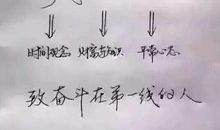 时间观念 财富与知识 平常心态
致奋斗在第一线的人